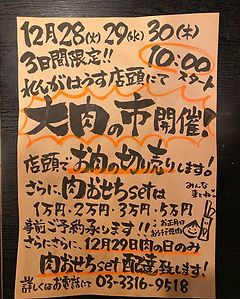 12月28(火)29(水)30(木)
3日間限定!! 10:00
れんがはうす店頭にて スタート
大肉の市開催!
店頭でお肉の切り売りします!
さらに、肉おせちsetは
1万円・2万円・3万円・5万円
事前ご予約承ります!!
さらにさらに、12月29日肉の日のみ
肉おせちset配達致します!
詳しくはお電話にて 03-3316-9518
みんな
まってね
お正月の